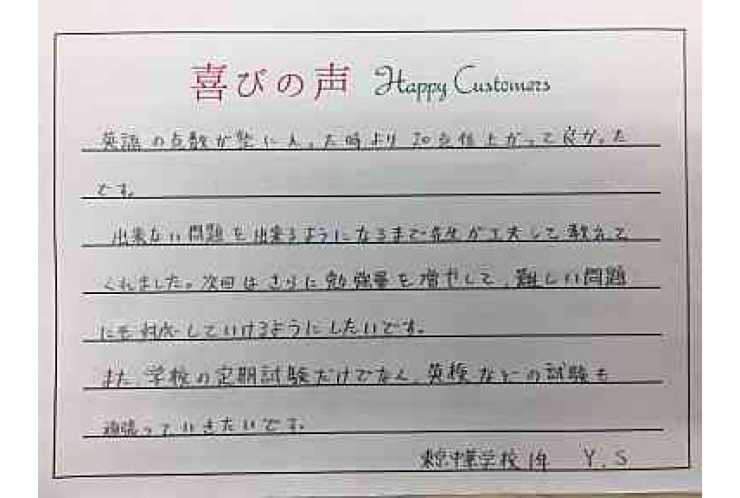 喜びの声 Happy Customers
英語の点数が塾に入った時より20点位上がって良かった
です。
出来ない問題を出来るようになるまで先生が工夫して教えて
くれました。次回はさらに勉強量を増やして、難しい問題
にも対応していけるようにしたいです。
また、学校の定期試験だけでなく、英検などの試験も
頑張っていきたいです。
東京中華学校 1年 Y.S